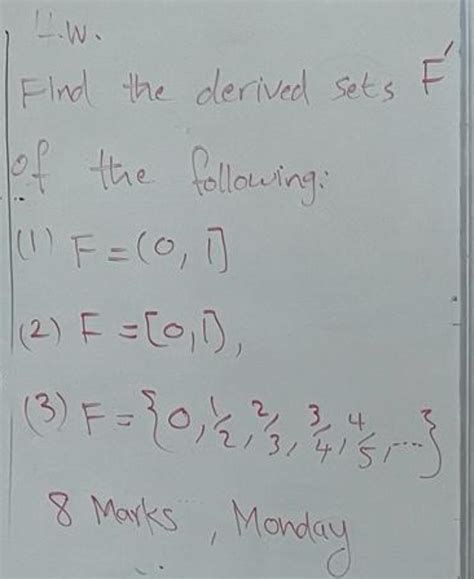 H.W.
Find the derived sets F'
of the following:
(1) F = (0, 1]
(2) F = [0, 1),
(3) F = {0, 1/2, 2/3, 3/4, 4/5, ...}
8 Marks, Monday